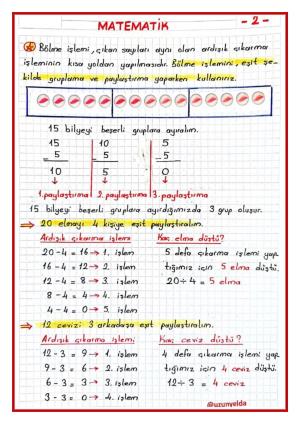 MATEMATİK
- 2 -
Bölme işlemi, çıkan sayıları aynı olan ardışık çıkarma
işleminin kısa yoldan yapılmasıdır. Bölme işlemini, eşit şe-
kilde gruplama ve paylaştırma yaparken kullanırız.
15 bilyeyi beşerli gruplara ayıralım.
15 10 5
- 5 - 5 - 5
10 5 0
1. paylaştırma 2. paylaştırma 3. paylaştırma
15 bilyeyi beşerli gruplara ayırdığımızda 3 grup oluşur.
⇒ 20 elmayı 4 kişiye eşit paylaştıralım.
Ardışık çıkarma işlemi
20 - 4 = 16 → 1. işlem
16 - 4 = 12 → 2. işlem
12 - 4 = 8 → 3. işlem
8 - 4 = 4 → 4. işlem
4 - 4 = 0 → 5. işlem
Kaç elma düştü?
5 defa çıkarma işlemi yap
tığımız için 5 elma düştü.
20 ÷ 4 = 5 elma
⇒ 12 cevizi 3 arkadaşa eşit paylaştıralım.
Ardışık çıkarma işlemi
12 - 3 = 9 → 1. işlem
9 - 3 = 6 → 2. işlem
6 - 3 = 3 → 3. işlem
3 - 3 = 0 → 4. işlem
Kaç ceviz düştü?
4 defa çıkarma işlemi yap
tığımız için 4 ceviz düştü.
12 ÷ 3 = 4 ceviz
@uzunyelda